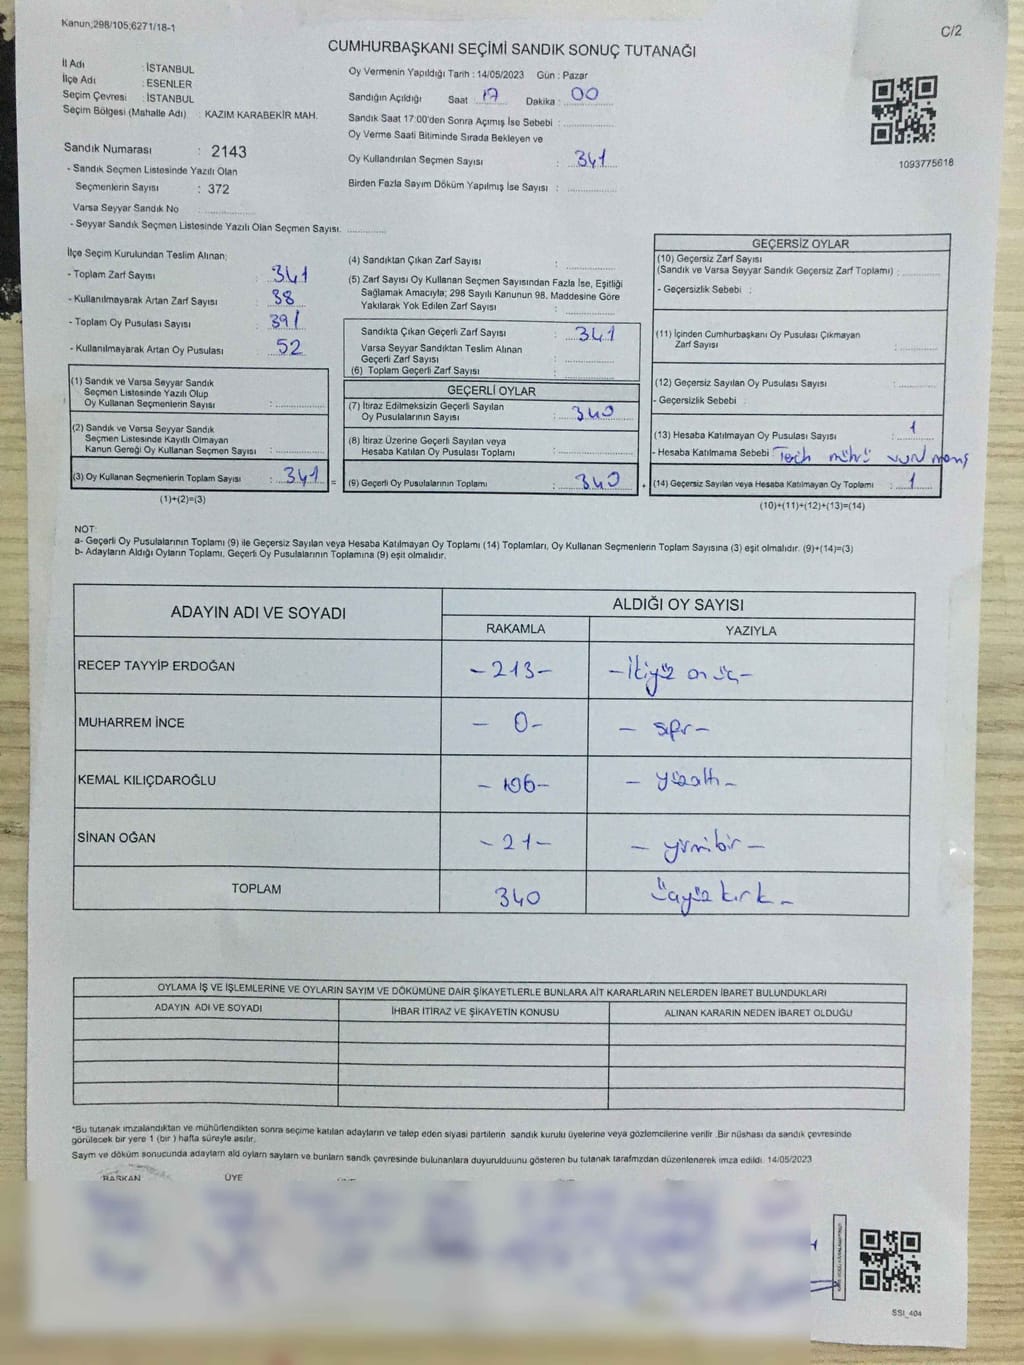 Kanun;298/105;6271/18-1
C/2
CUMHURBAŞKANI SEÇİMİ SANDIK SONUÇ TUTANAĞI
İl Adı : İSTANBUL
İlçe Adı : ESENLER
Seçim Çevresi : İSTANBUL
Seçim Bölgesi (Mahalle Adı) : KAZIM KARABEKİR MAH.
Sandık Numarası : 2143
- Sandık Seçmen Listesinde Yazılı Olan
Seçmenlerin Sayısı : 372
Varsa Seyyar Sandık No
- Seyyar Sandık Seçmen Listesinde Yazılı Olan Seçmen Sayısı.
Oy Vermenin Yapıldığı Tarih : 14/05/2023 Gün : Pazar
Sandığın Açıldığı Saat 17 Dakika : 00
Sandık Saat 17:00'den Sonra Açımış İse Sebebi :
Oy Verme Saati Bitiminde Sırada Bekleyen ve
Oy Kullandırılan Seçmen Sayısı : 341
Birden Fazla Sayım Döküm Yapılmış İse Sayısı :
1093775618
İlçe Seçim Kurulundan Teslim Alınan;
- Toplam Zarf Sayısı : 341
- Kullanılmayarak Artan Zarf Sayısı : 38
- Toplam Oy Pusulası Sayısı : 391
- Kullanılmayarak Artan Oy Pusulası : 52
(1) Sandık ve Varsa Seyyar Sandık
Seçmen Listesinde Yazılı Olup
Oy Kullanan Seçmenlerin Sayısı :
(2) Sandık ve Varsa Seyyar Sandık
Seçmen Listesinde Kayıtlı Olmayan
Kanun Gereği Oy Kullanan Seçmen Sayısı :
(3) Oy Kullanan Seçmenlerin Toplam Sayısı : 341 =
(1)+(2)=(3)
(4) Sandıktan Çıkan Zarf Sayısı :
(5) Zarf Sayısı Oy Kullanan Seçmen Sayısından Fazla İse, Eşitliği
Sağlamak Amacıyla; 298 Sayılı Kanunun 98. Maddesine Göre
Yakılarak Yok Edilen Zarf Sayısı :
Sandıkta Çıkan Geçerli Zarf Sayısı : 341
Varsa Seyyar Sandıktan Teslim Alınan
Geçerli Zarf Sayısı :
(6) Toplam Geçerli Zarf Sayısı :
GEÇERLİ OYLAR
(7) İtiraz Edilmeksizin Geçerli Sayılan
Oy Pusulalarının Sayısı : 340
(8) İtiraz Üzerine Geçerli Sayılan veya
Hesaba Katılan Oy Pusulası Toplamı :
(9) Geçerli Oy Pusulalarının Toplamı : 340 +
GEÇERSİZ OYLAR
(10) Geçersiz Zarf Sayısı
(Sandık ve Varsa Seyyar Sandık Geçersiz Zarf Toplamı) :
- Geçersizlik Sebebi :
(11) İçinden Cumhurbaşkanı Oy Pusulası Çıkmayan
Zarf Sayısı :
(12) Geçersiz Sayılan Oy Pusulası Sayısı :
- Geçersizlik Sebebi :
(13) Hesaba Katılmayan Oy Pusulası Sayısı : 1
- Hesaba Katılmama Sebebi : mührü
(14) Geçersiz Sayılan veya Hesaba Katılmayan Oy Toplamı : 1
(10)+(11)+(12)+(13)=(14)
NOT:
a- Geçerli Oy Pusulalarının Toplamı (9) ile Geçersiz Sayılan veya Hesaba Katılmayan Oy Toplamı (14) Toplamları, Oy Kullanan Seçmenlerin Toplam Sayısına (3) eşit olmalıdır. (9)+(14)=(3)
b- Adayların Aldığı Oyların Toplamı, Geçerli Oy Pusulalarının Toplamına (9) eşit olmalıdır.
ADAYIN ADI VE SOYADI
ALDIĞI OY SAYISI
RAKAMLA YAZIYLA
RECEP TAYYİP ERDOĞAN -213- -İkiyüz on üç-
MUHARREM İNCE - 0- - sıfır -
KEMAL KILIÇDAROĞLU - 106- - yüzaltı -
SİNAN OĞAN - 21- - yirmibir -
TOPLAM 340 üçyüz kırk -
OYLAMA İŞ VE İŞLEMLERİNE VE OYLARIN SAYIM VE DÖKÜMÜNE DAİR ŞİKAYETLERLE BUNLARA AİT KARARLARIN NELERDEN İBARET BULUNDUKLARI
ADAYIN ADI VE SOYADI İHBAR İTİRAZ VE ŞİKAYETİN KONUSU ALINAN KARARIN NEDEN İBARET OLDUĞU
*Bu tutanak imzalandıktan ve mühürlendikten sonra seçime katılan adayların ve talep eden siyasi partilerin sandık kurulu üyelerine veya gözlemcilerine verilir .Bir nüshası da sandık çevresinde
görülecek bir yere 1 (bir ) hafta süreyle asılır.
Sayım ve döküm sonucunda adayların ald oyların sayıları ve bunların sandk çevresinde bulunanlara duyurulduunu gösteren bu tutanak tarafmzdan düzenlenerek imza edildi. 14/05/2023
BAŞKAN ÜYE
SSI_404